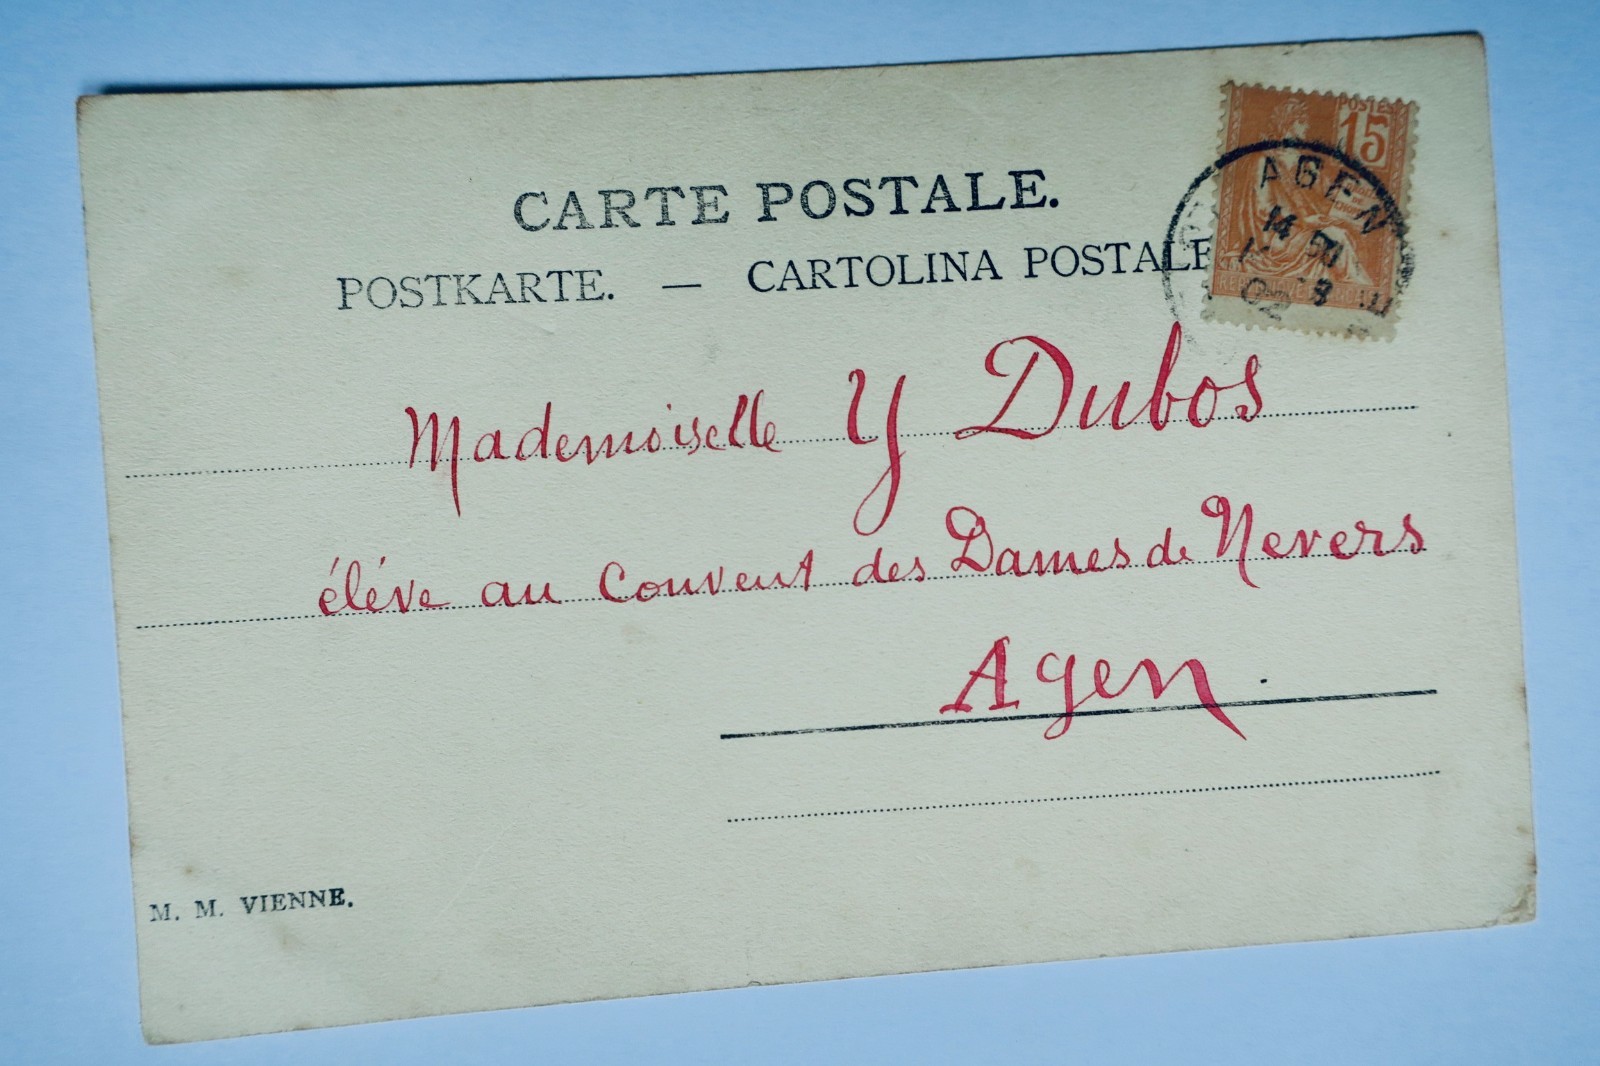 CARTE POSTALE.
POSTKARTE. — CARTOLINA POSTALE
POSTES
15
AGEN
14
02
Mademoiselle Y Dubos
élève au Couvent des Dames de Nevers
Agen.
M. M. VIENNE.